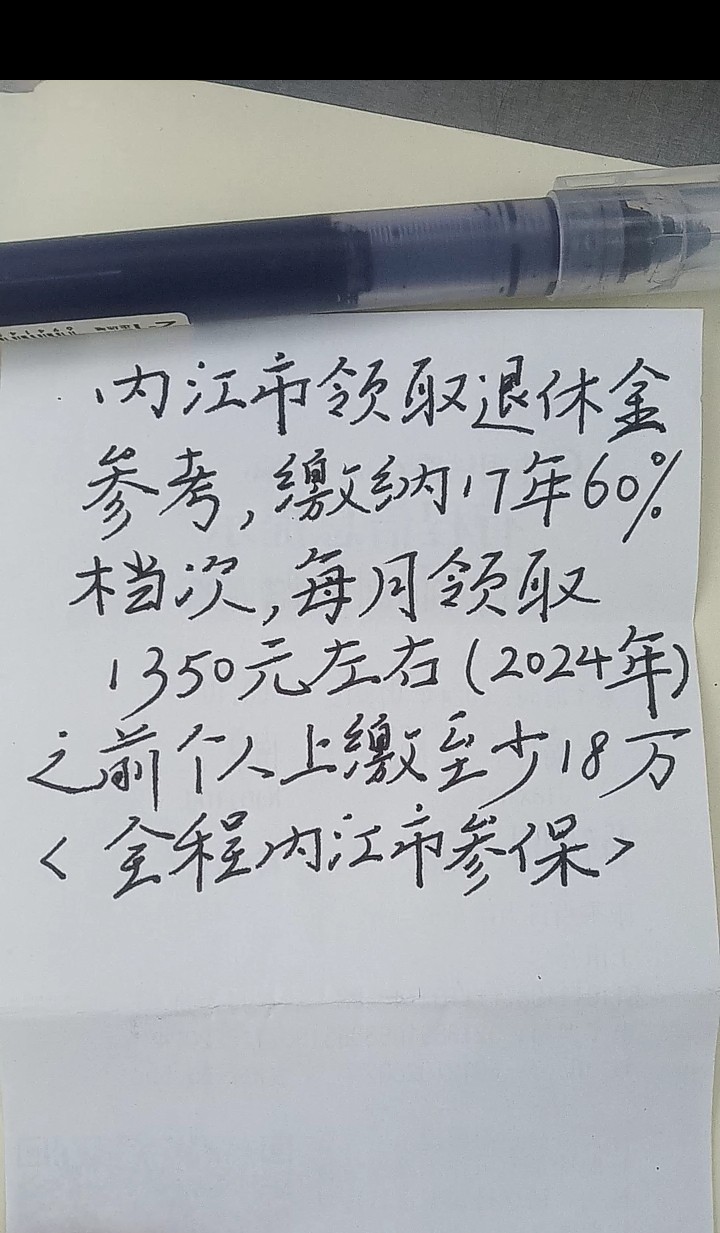 内江市领取退休金
参考,缴纳17年60%
档次,每月领取
1350元左右(2024年)
之前个人上缴至少18万
<全程内江市参保>